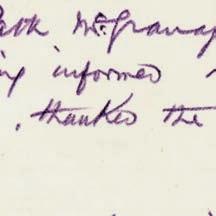 Mc Grana
ing informed
, thanked the